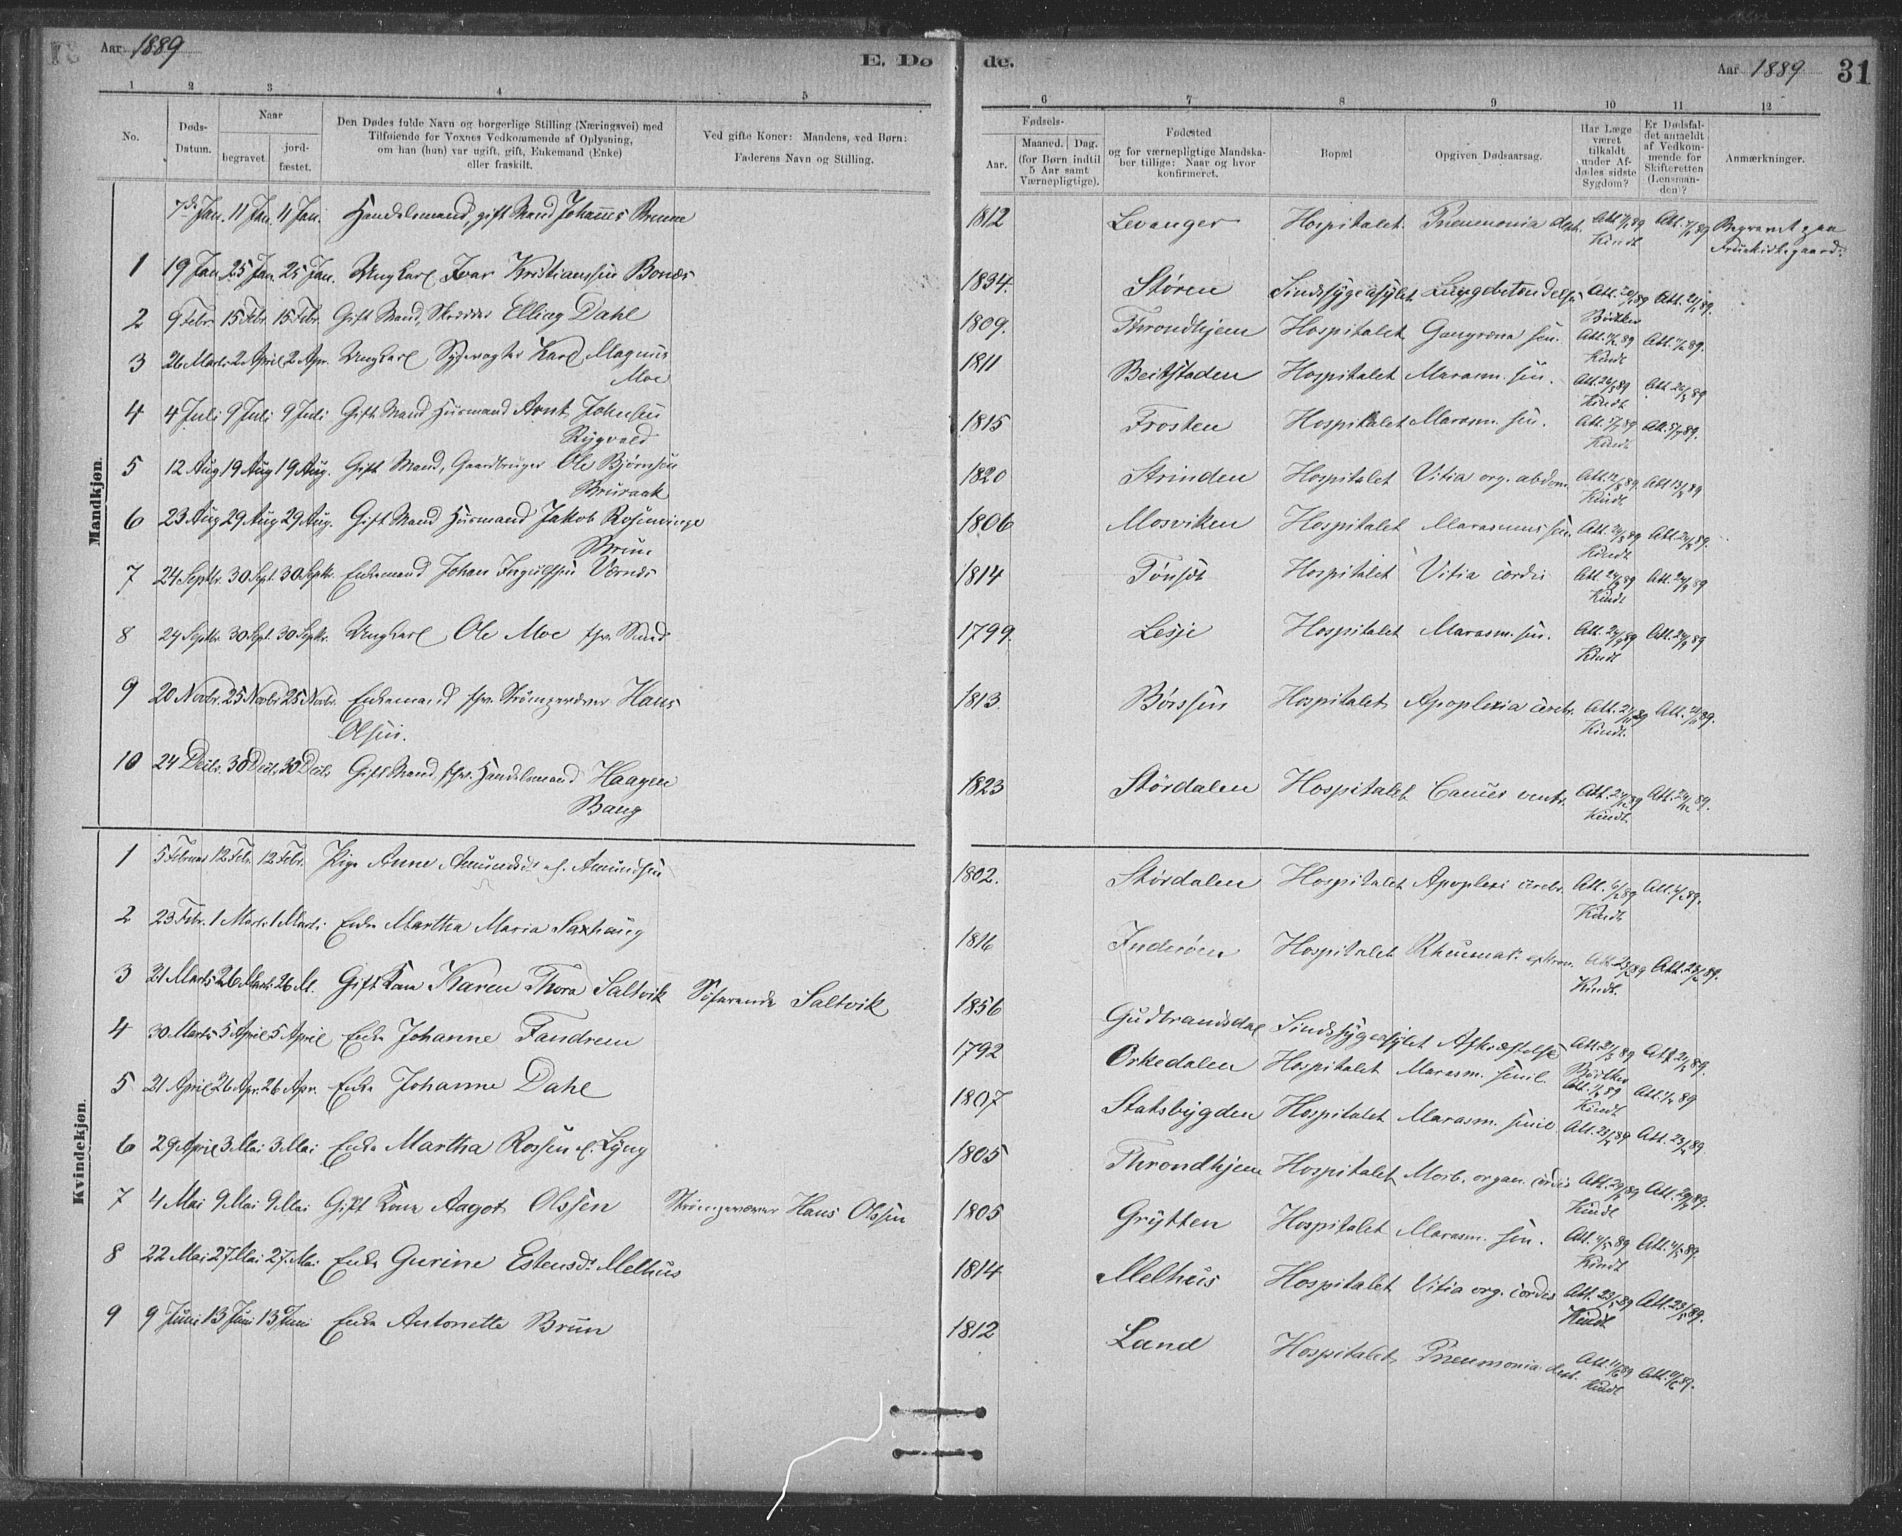 Aar 1889
E. Dø
de.
Aar 1889
31
1 2 3 4 5
6 7 8 9 10 11 12
No.
Døds-Datum.
Naar
begravet.
jordfæstet.
Den Dødes fulde Navn og borgerlige Stilling (Næringsvei) med
Tilføiende for Voxnes Vedkommende af Oplysning,
om han (hun) var ugift, gift, Enkemand (Enke)
eller fraskilt.
Ved gifte Koner: Mandens, ved Børn:
Faderens Navn og Stilling.
Fødsels-
Aar.
Maaned. Dag.
(for Børn indtil
5 Aar samt
Værnepligtige).
Fødested
og for værnepligtige Mandska-
ber tillige: Naar og hvor
konfirmeret.
Bopæl
Opgiven Dødsaarsag.
Har Læge
været
tilkaldt
under Af-
dødes sidste
Sygdom?
Er Dødsfal-
det anmeldt
af Vedkom-
mende for
Skifteretten
(Lensman-
den)?
Anmærkninger.
Mandkjøn.
7de Jan. 11 Jan. 11 Jan. Handelsmand, gift Mand Johannes Brenne 1812 Levanger Hospitalet Pneumonia Att. 89 Att. 89 Begravet paa
Kindt Fruekirkegaard.
1 19 Jan. 25 Jan. 25 Jan. Ungkarl Ivar Kristianssen Bonæs 1834. Støren Sindssygeasylet Lungebetændelse Att. 89 Att. 89.
2 9 Febr. 15 Febr. 15 Febr. Gift Mand, Skræder Elling Dahl 1809. Throndhjem Hospitalet Gangræna sen. Att. 89 Att. 89.
Kindt
3 26 Marts 2 April 2 Apr. Ungkarl Sygevogter Karl Magnus 1811 Beitstaden Hospitalet Marasm. sen. Att. 26/3 89 Att. 26/3 89
Moe Kindt
4 4 Juli 9 Juli 9 Juli Gift Mand Husmand Arnt Johnsen 1815 Frosten Hospitalet Marasm. sen. Att. 5/7 89 Att. 5/7 89.
Rygvold Kindt
5 12 Aug 19 Aug 19 Aug. Gift Mand, Gaardbruger Ole Bjørnsen 1820 Strinden Hospitalet Vitia org. abdom. Att. 12/8 89. Att 13/8 89
Bruraak Kindt
6 23 Aug 29 Aug 29 Aug. Gift Mand Husmand Jakob Rosenvinge 1806 Mosviken Hospitalet Marasmus sen. Att. 24/8 89 Att. 24/8 89.
Brun Kindt
7 24 Septbr. 30 Sept. 30 Septbr. Enkemand Johan Værnes 1814 Tønset Hospitalet Vitia cordis Att. 24/9 89 Att. 24/9 89
Kindt
8 24 Septbr. 30 Sept. 30 Septbr. Ungkarl Ole Moe fhv. Smed 1799. Lesje Hospitalet Marasm. sen. Att. 24/9 89 Att. 24/9 89
Kindt
9 20 Novbr. 25 Novbr. 25 Novbr. Enkemand fhv. Strømpevæver Hans 1813. Børssen Hospitalet Apoplexia cerebr. Att. 21/11 89 Att. 21/11 89.
Olsen. Kindt.
10 24 Decbr. 30 Decb. 30 Decb. Gift Mand, fhv. Handelsmand Haagen 1823 Størdalen Hospitalet Cancer ventr. Att. 24/12 89 Att. 24/12 89.
Bang Kindt.
Kvindekjøn.
1 5 Februar 12 Febr. 12 Febr. Pige Anne Amundsdr. ell. Amundsen 1802. Størdalen Hospitalet Apoplexi cerebr. Att. 6/2 89 Att. 6/2 89.
Kindt
2 23 Febr. 1 Marts 1 Marts Enke Martha Maria Saxhaug 1816 Inderøen Hospitalet Rheumat. Att. 23/2 89 Att. 23/2 89.
Kindt.
3 21 Marts 26 Marts 26 M. Gift Kone Karen Thora Saltvik Søfarende Saltvik 1856 Gudbrandsdal Sindssygeasylet Afkræftelse Att. 21/3 89 Att. 21/3 89.
4 30 Marts 5 April 5 April Enke Johanne Fandrem 1792 Orkedalen Hospitalet Marasm. senil. Att. 1/4 89 Att. 1/4 89
Kindt
5 21 April 26 Apr. 26 Apr. Enke Johanne Dahl 1807 Statsbygden Hospitalet Marasm. senil. Att. 23/4 89 Att. 23/4 89.
6 29 April 3 Mai 3 Mai Enke Martha Rossen f. Lyng 1805 Throndhjem Hospitalet Morb. organ. cordis Att. 29/4 89 Att. 29/4 89.
Kindt
7 4 Mai 9 Mai 9 Mai Gift Kone Aagot Olssen Strømpevæver Hans Olssen 1805 Grytten Hospitalet Marasm. sen. Att. 4/5 89 Att. 4/5 89
Kindt
8 22 Mai 27 Mai 27. Mai Enke Gurine Estensdr. Melhus 1814 Melhus Hospitalet Vitia org. cordis Att. 23/5 89 Att. 23/5 89.
Kindt
9 9 Juni 13 Juni 13 Juni Enke Antonette Brun 1812 Land Hospitalet Pneumonia Att. 11/6 89 Att. 11/6 89.
Kindt